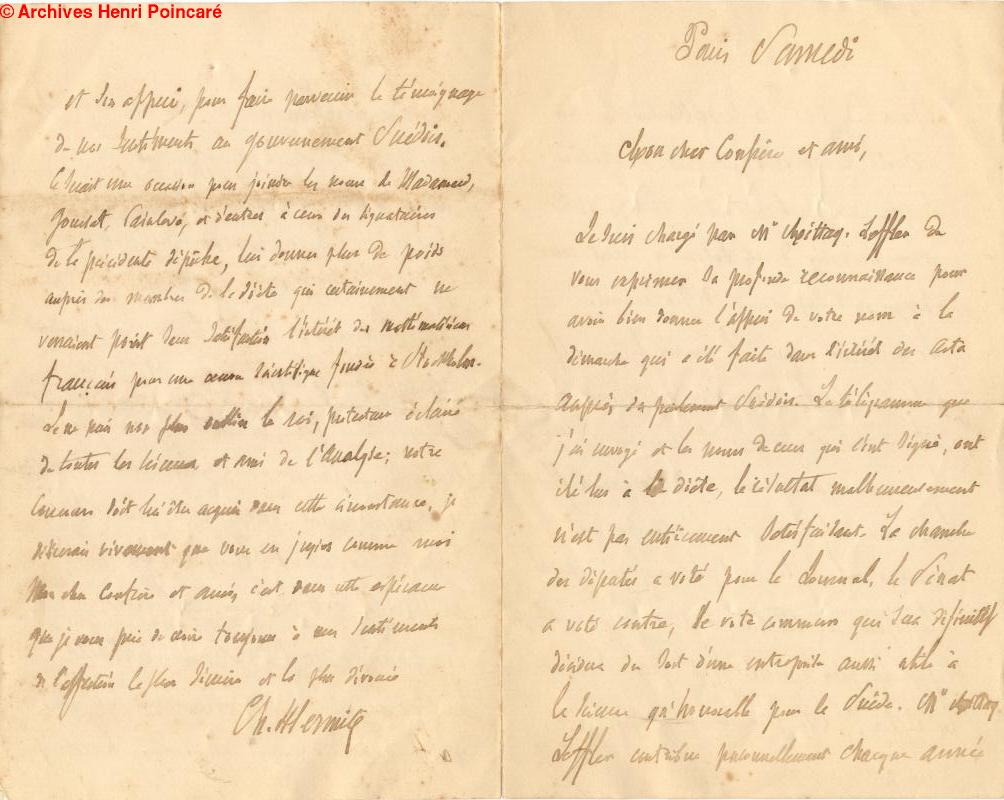 © Archives Henri Poincaré
Paris Samedi
Mon cher Confrère et ami,
Je suis chargé par Mr Mittag-Leffler de
vous exprimer sa profonde reconnaissance pour
avoir bien donner l'appui de votre nom à la
démarche qui a été faite dans l'intérêt des Acta
auprès du parlement Suédois. Le télégramme que
j'ai envoyé et les noms de ceux qui l'ont signé, ont
été lus à la diète, le résultat malheureusement
n'est pas entièrement satisfaisant. La chambre
des députés a voté pour le Journal, le Sénat
a voté contre, le vote commun qui sera définitif
décidera du sort d'une entreprise aussi utile à
la Science qu'honorable pour la Suède. Mr Mittag
Leffler contribue personnellement chaque année
et son appui, pour faire parvenir le témoignage
de nos sentiments au gouvernement Suédois.
Ce serait une occasion pour joindre les noms de
Goursat, et d'autres à ceux des signataires
de la précédente dépêche, lui donner plus de poids
auprès des membres de la diète qui certainement ne
verraient point sans satisfaction l'intérêt des mathématiciens
français pour une œuvre scientifique fondée à Stockholm.
Je ne puis non plus oublier le roi, protecteur éclairé
de toutes les sciences et ami de l'Analyse; notre
concours doit lui être acquis dans cette circonstance, je
désirerais vivement que vous en jugiez comme moi
Mon cher Confrère et ami, c'est dans cette espérance
que je vous prie de croire toujours à mes sentiments
de l'affection la plus sincère et la plus dévouée
Ch. Hermite